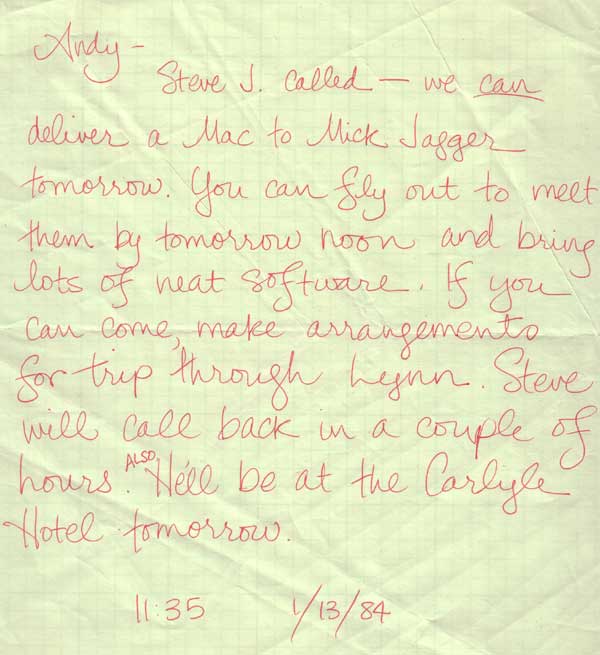 Andy -
Steve J. called — we can
deliver a Mac to Mick Jagger
tomorrow. You can fly out to meet
them by tomorrow noon and bring
lots of neat software. If you
can come, make arrangements
for trip through Lynn. Steve
will call back in a couple of
hours. ALSO, He'll be at the Carlyle
Hotel tomorrow.
11:35 1/13/84